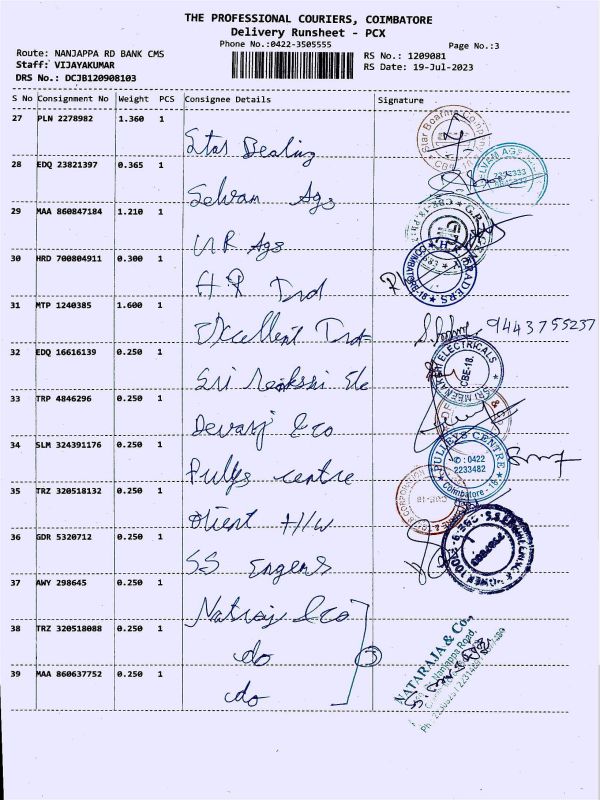 THE PROFESSIONAL COURIERS, COIMBATORE
Delivery Runsheet - PCX
Phone No.:0422-3505555
Page No.:3
Route: NANJAPPA RD BANK CMS
RS No.: 1209081
Staff: VIJAYAKUMAR
RS Date: 19-Jul-2023
DRS No.: DCJB120908103
S No Consignment No Weight PCS Consignee Details Signature
27 PLN 2278982 1.360 1
Star
28 EDQ 23821397 0.365 1
Selvam Ags
29 MAA 860847184 1.210 1
UR Ags
30 HRD 700804911 0.300 1
HR Trd
31 MTP 1240385 1.600 1
Excellent Trd
9443755237
32 EDQ 16616139 0.250 1
Sri Ele
SRI MEENAKSHI ELECTRICALS
CBE-18.
33 TRP 4846296 0.250 1
Devarj & co
34 SLM 324391176 0.250 1
Pullys centre
PULLEYS CENTRE
0422
2233482
Coimbatore - 18
35 TRZ 320518132 0.250 1
Orient H/w
36 GDR 5320712 0.250 1
SS Engers
37 AWY 298645 0.250 1
Natraj & co
38 TRZ 320518088 0.250 1
do
3
39 MAA 860637752 0.250 1
do
NATARAJA & Co.,
Nanjappa Road,